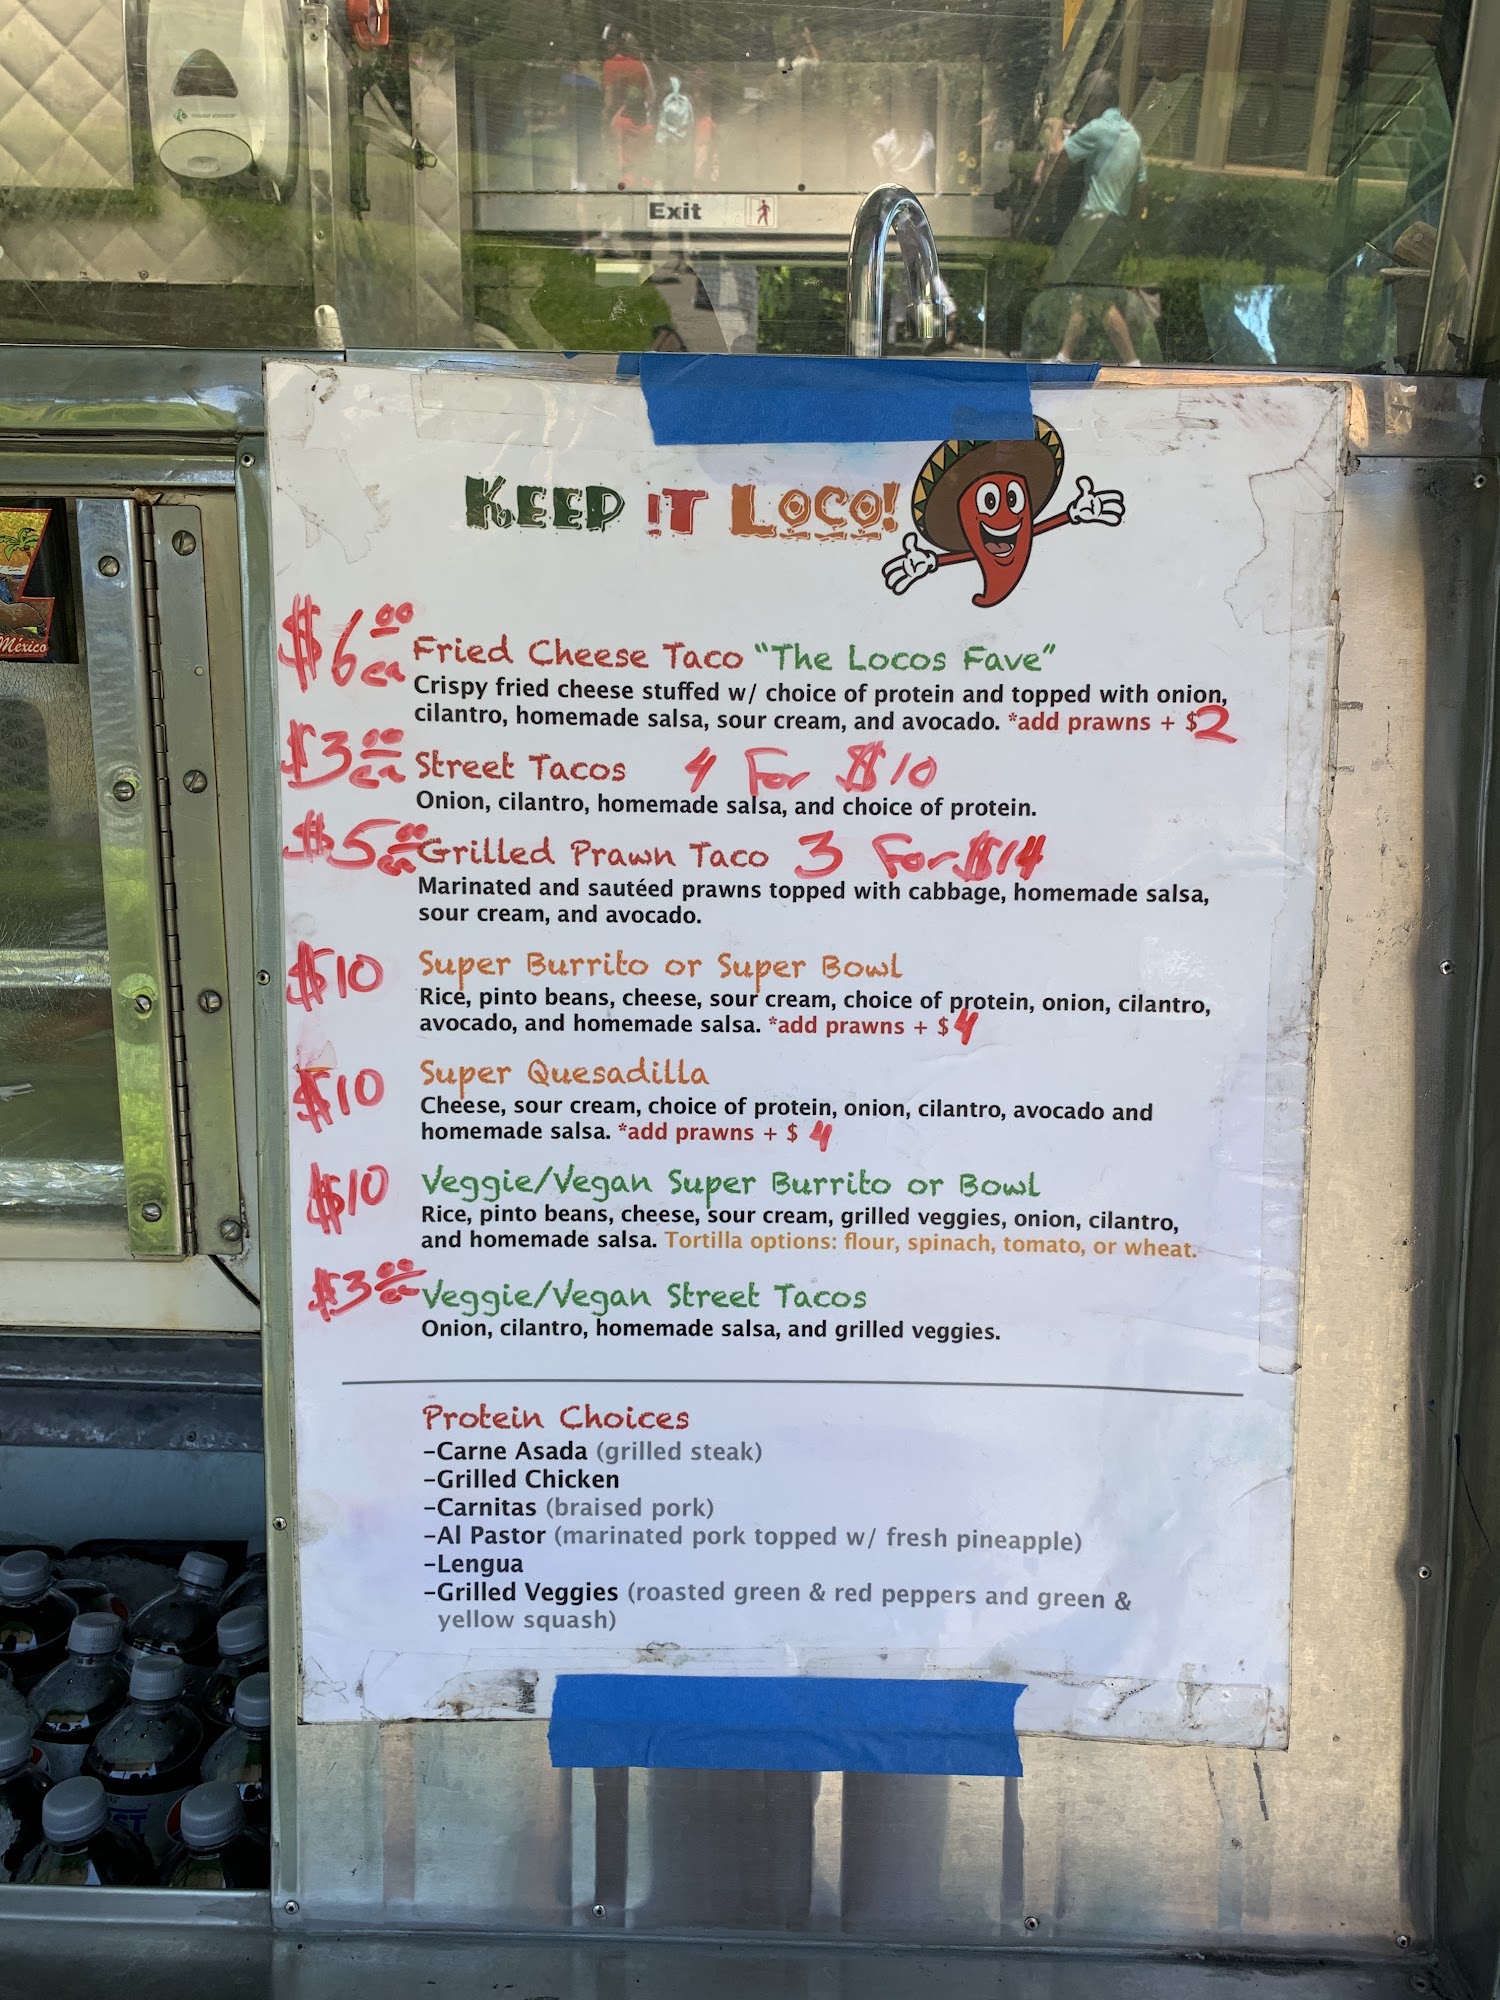 Exit
KEEP IT LOCO!
México
$6.00 ea Fried Cheese Taco "The Locos Fave"
Crispy fried cheese stuffed w/ choice of protein and topped with onion,
cilantro, homemade salsa, sour cream, and avocado. *add prawns + $2
$3.00 ea Street Tacos 4 For $10
Onion, cilantro, homemade salsa, and choice of protein.
$5.00 ea Grilled Prawn Taco 3 For $14
Marinated and sautéed prawns topped with cabbage, homemade salsa,
sour cream, and avocado.
$10 Super Burrito or Super Bowl
Rice, pinto beans, cheese, sour cream, choice of protein, onion, cilantro,
avocado, and homemade salsa. *add prawns + $4
$10 Super Quesadilla
Cheese, sour cream, choice of protein, onion, cilantro, avocado and
homemade salsa. *add prawns + $4
$10 Veggie/Vegan Super Burrito or Bowl
Rice, pinto beans, cheese, sour cream, grilled veggies, onion, cilantro,
and homemade salsa. Tortilla options: flour, spinach, tomato, or wheat.
$3.00 ea Veggie/Vegan Street Tacos
Onion, cilantro, homemade salsa, and grilled veggies.
Protein Choices
-Carne Asada (grilled steak)
-Grilled Chicken
-Carnitas (braised pork)
-Al Pastor (marinated pork topped w/ fresh pineapple)
-Lengua
-Grilled Veggies (roasted green & red peppers and green &
yellow squash)